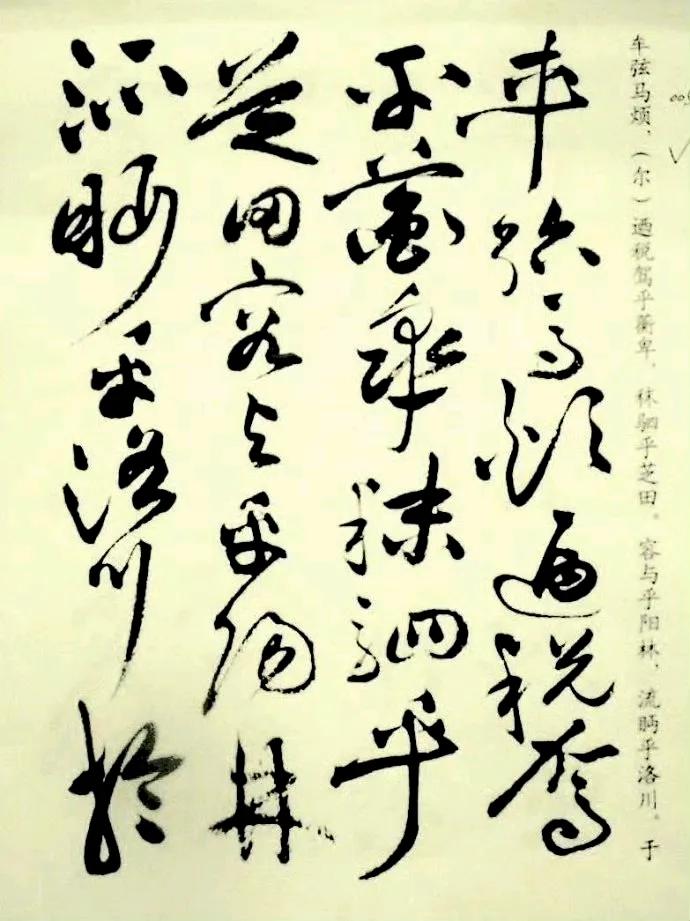 车弦马烦，（尔）迺税驾乎蘅卑，秣驷乎芝田。容与乎阳林，流眄乎洛川。于
車殆馬煩迺税駕
乎蘅皋秣駟乎
芝田容与乎陽林
流眄乎洛川於